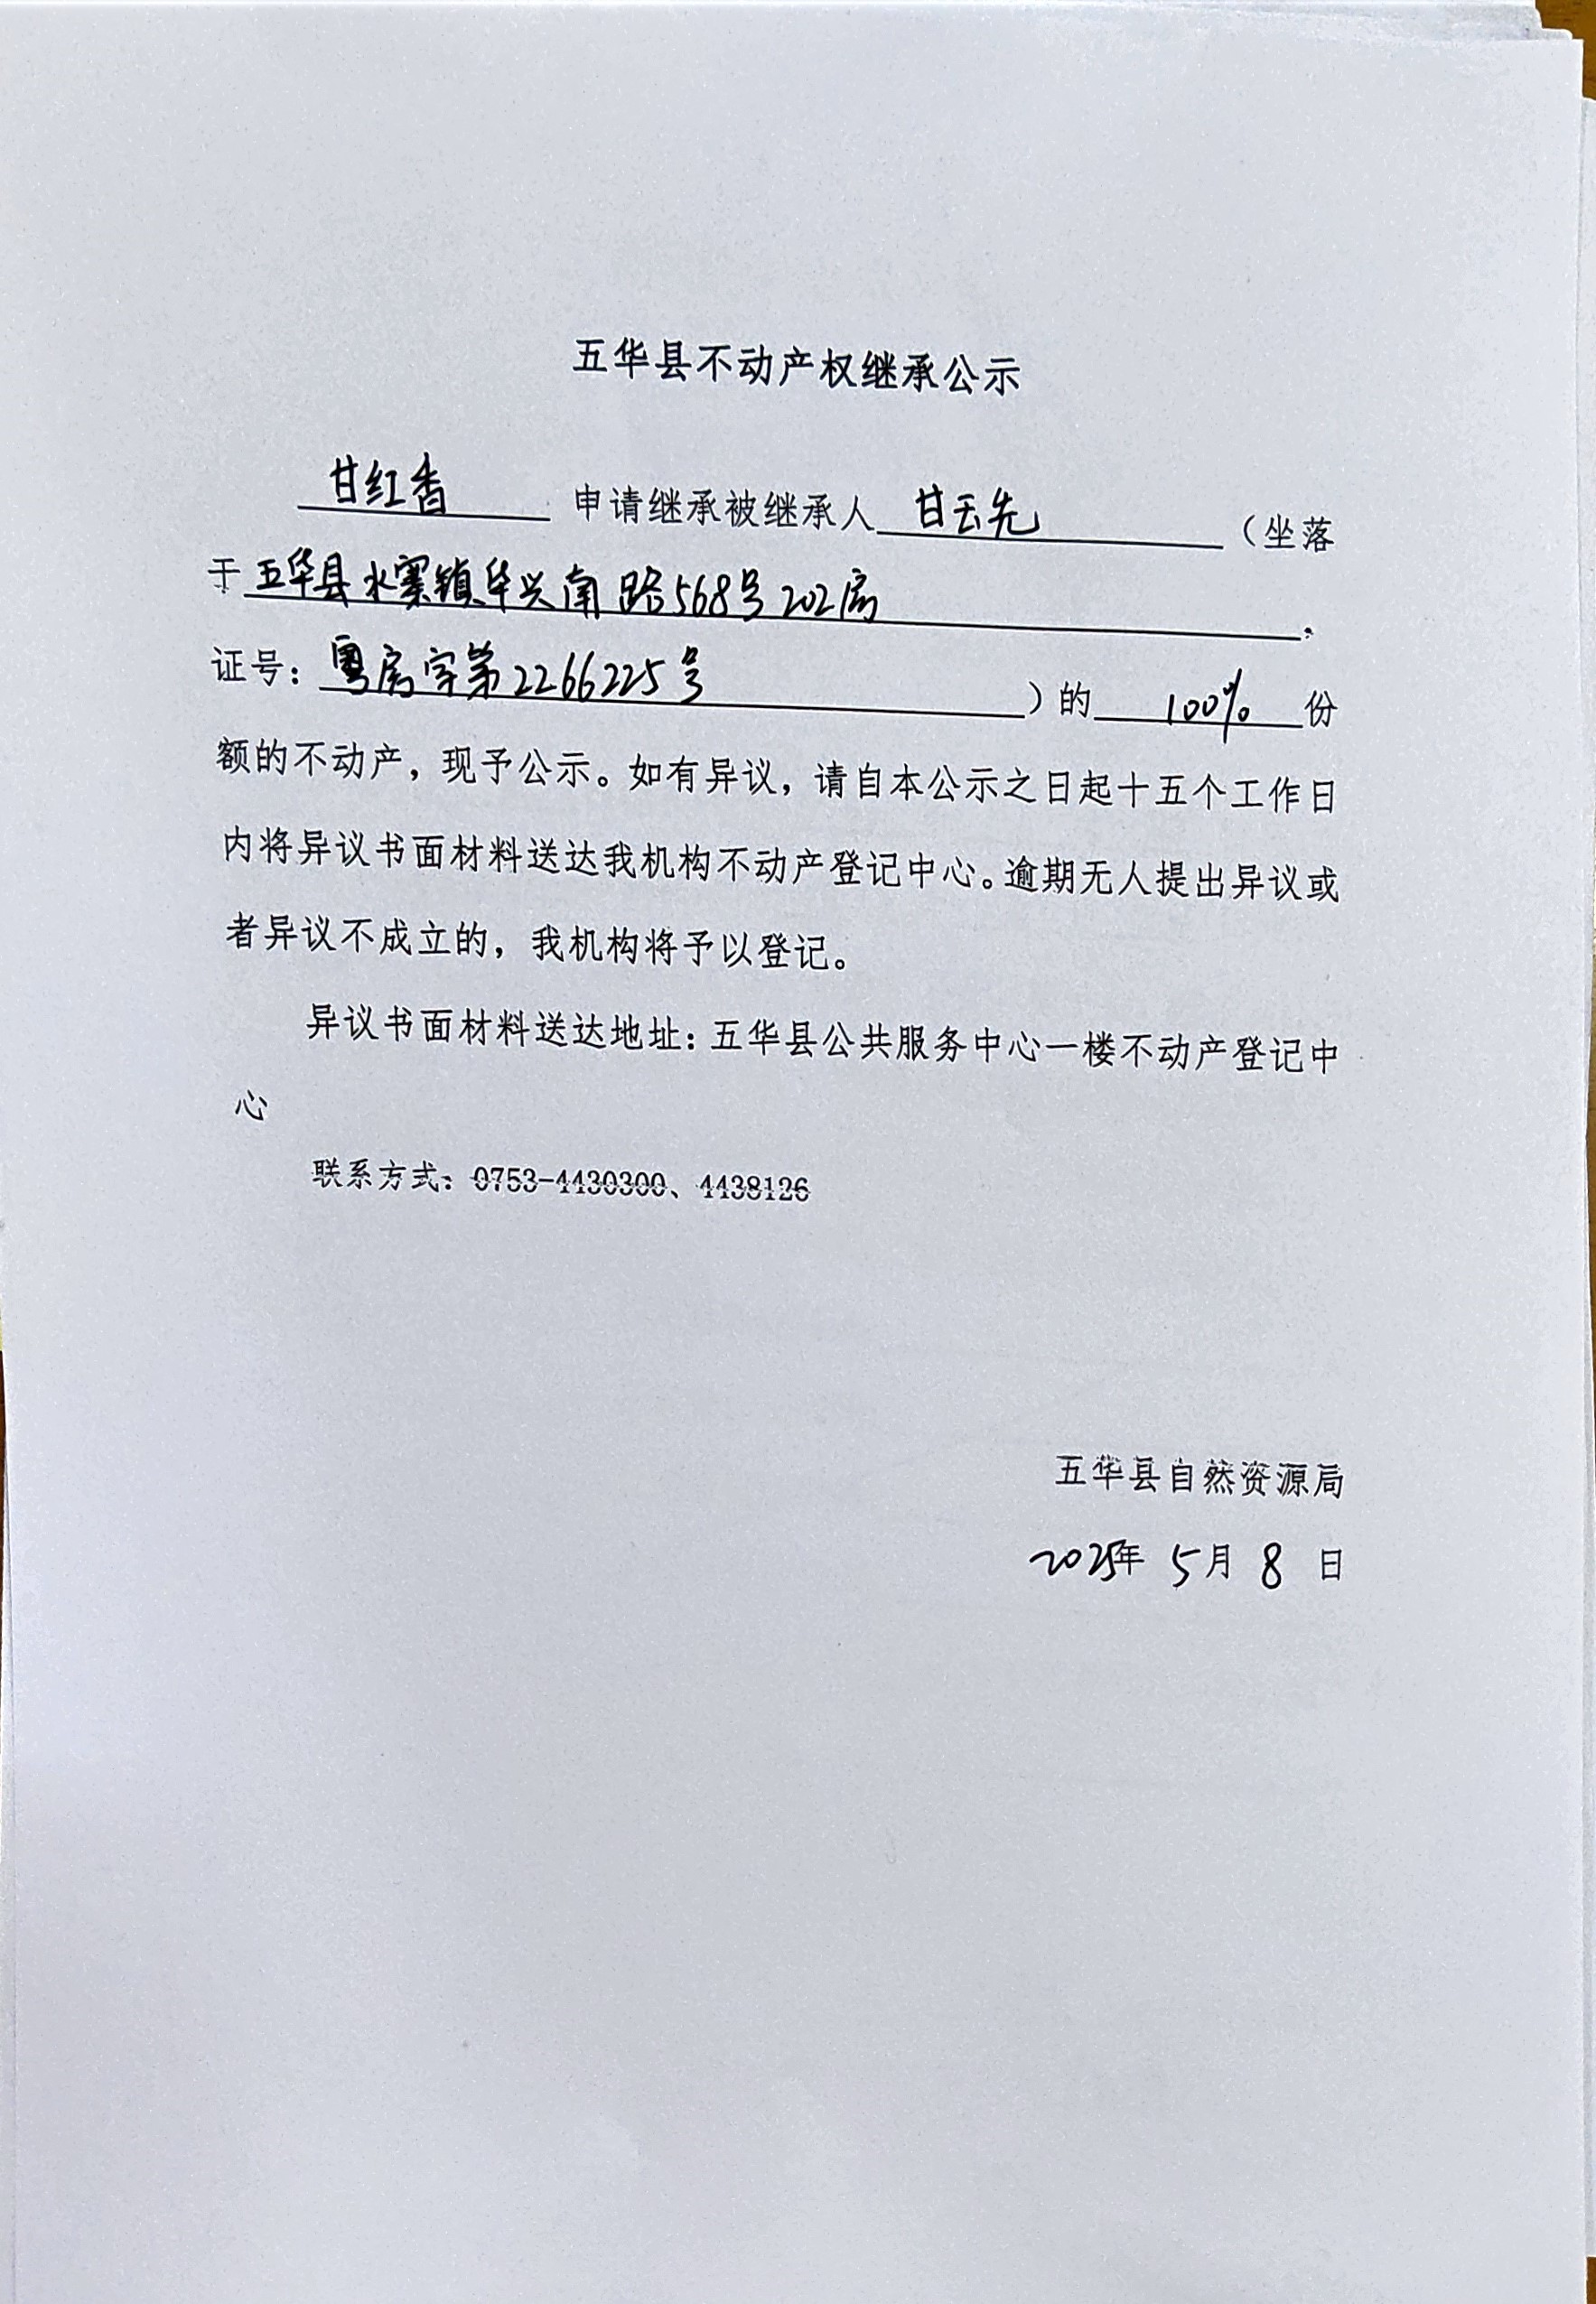 五华县不动产权继承公示
甘红香 申请继承被继承人 甘云先 （坐落
于五华县水寨镇华兴南路568号202房，
证号：粤房字第2266225号）的 100% 份
额的不动产，现予公示。如有异议，请自本公示之日起十五个工作日
内将异议书面材料送达我机构不动产登记中心。逾期无人提出异议或
者异议不成立的，我机构将予以登记。
异议书面材料送达地址：五华县公共服务中心一楼不动产登记中
心
联系方式：0753-4430300、4438126
五华县自然资源局
2025年 5月 8 日